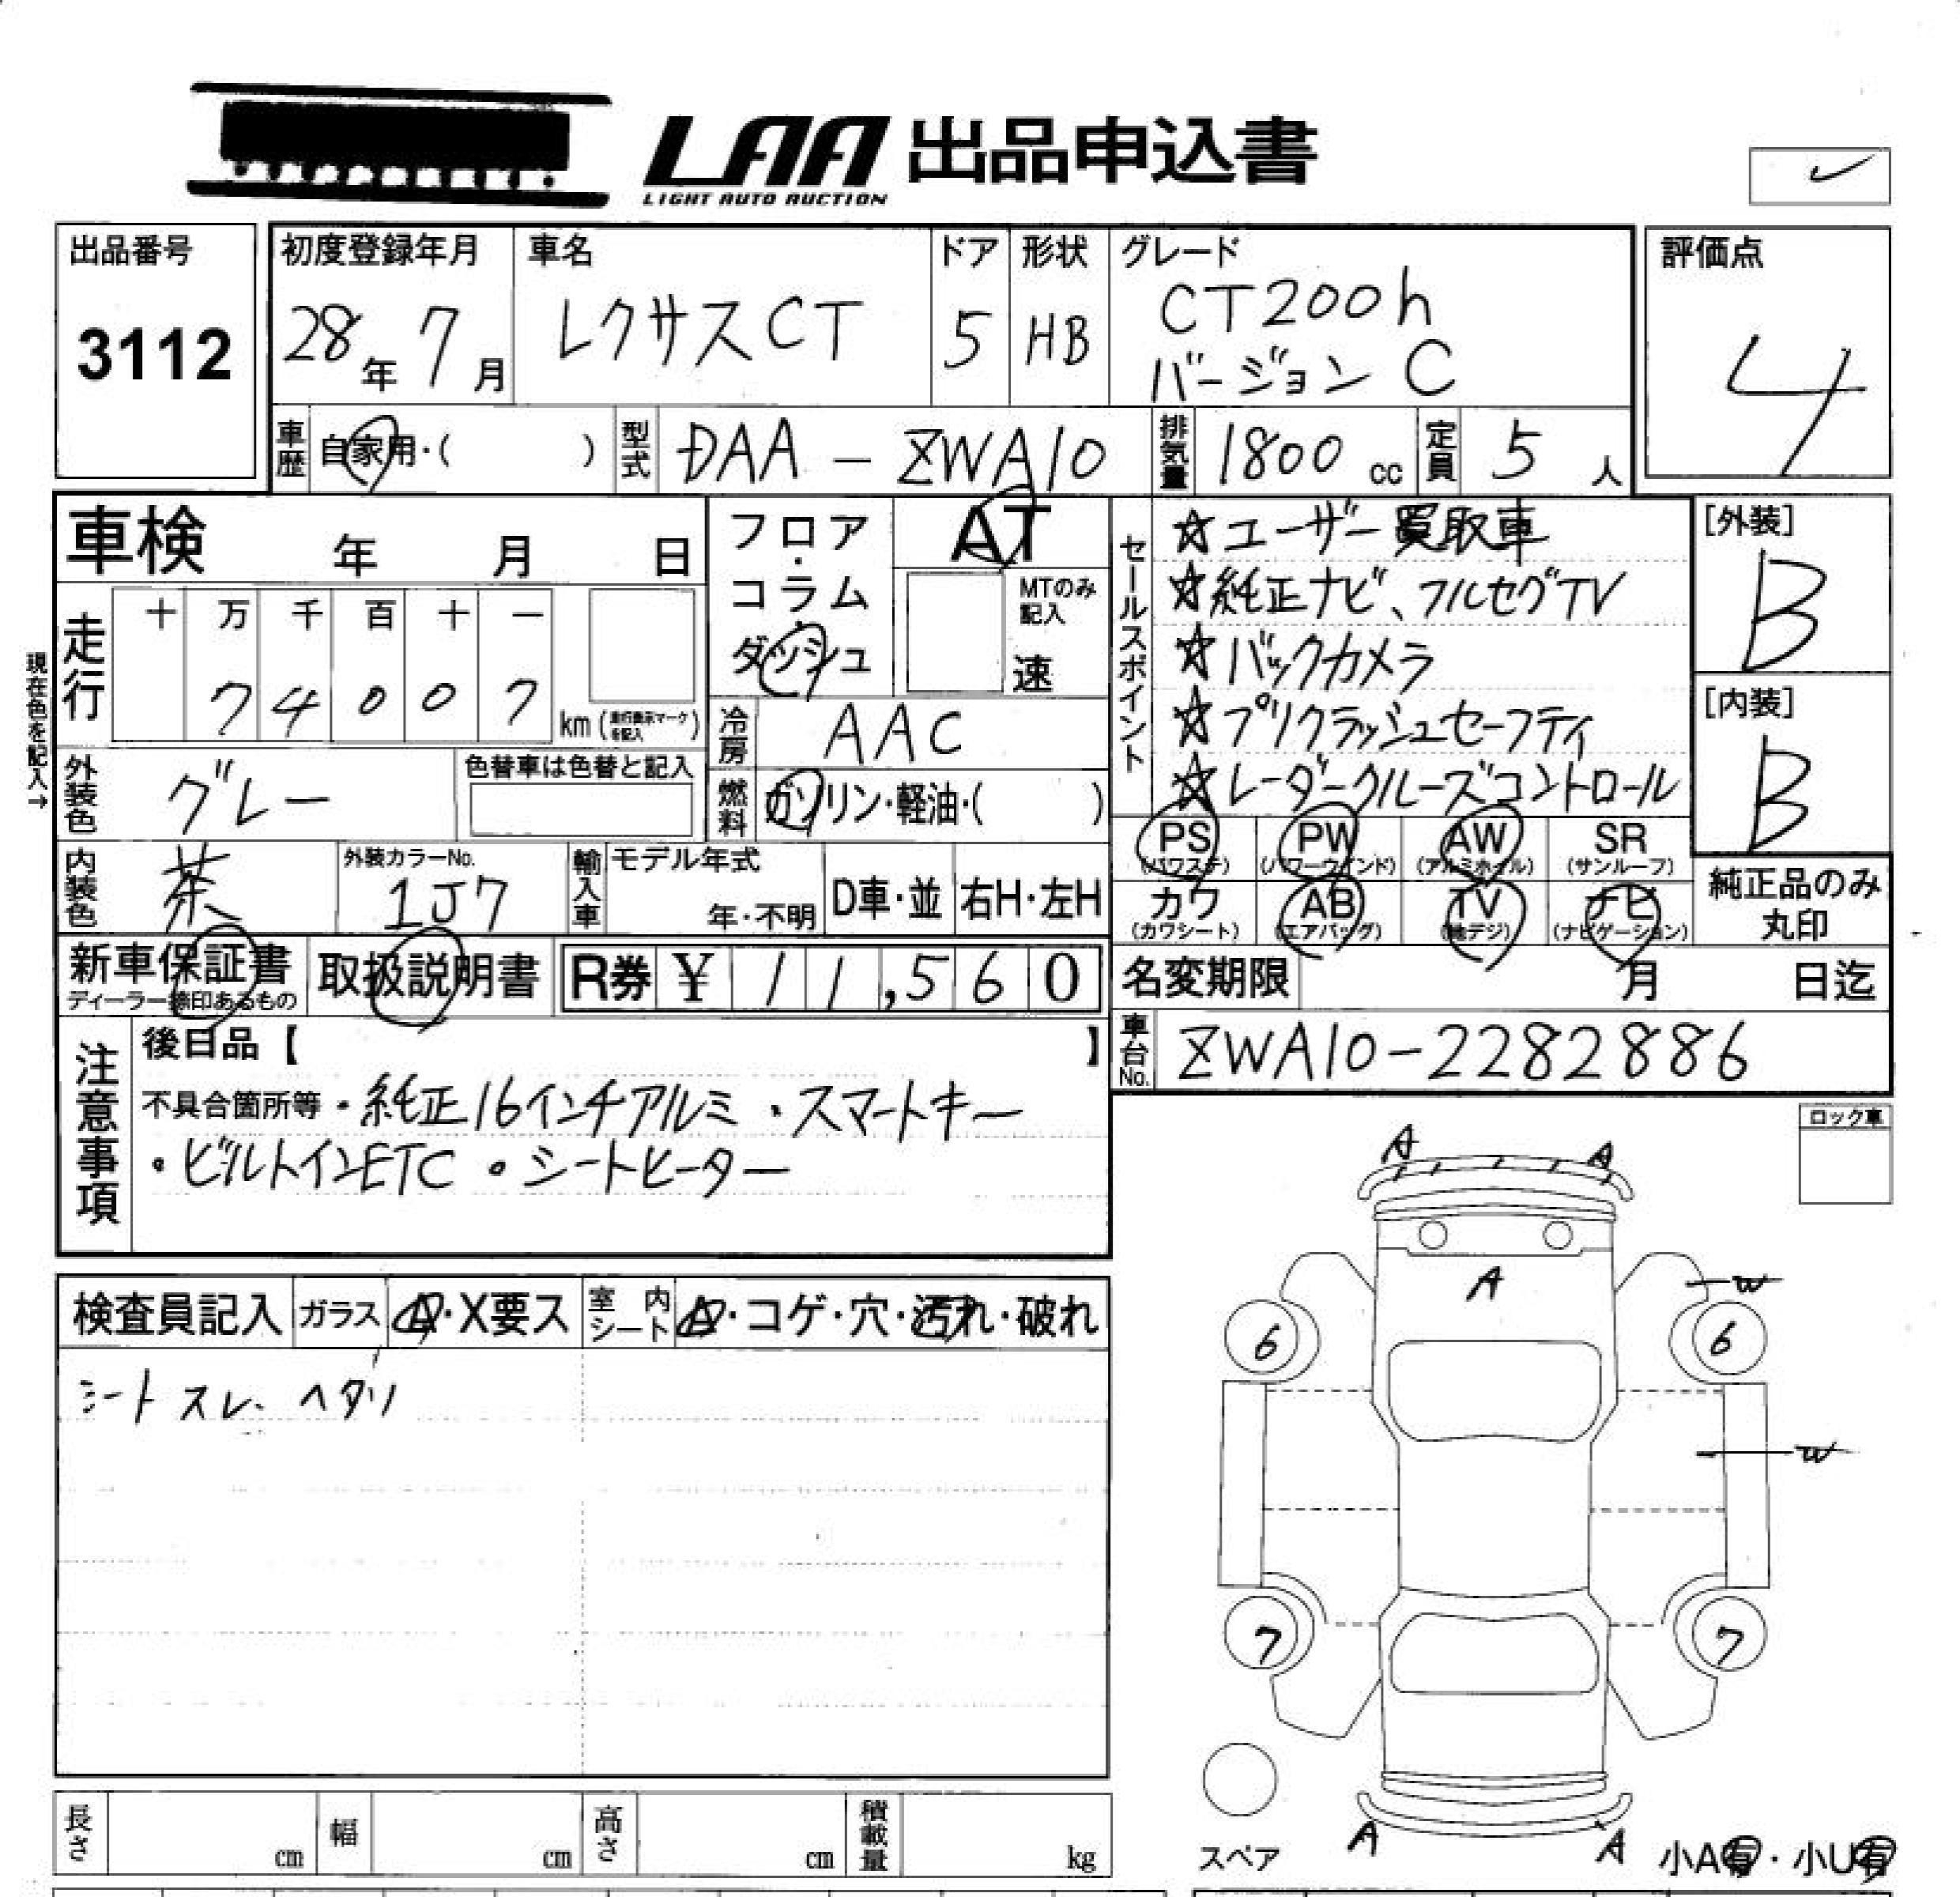 LAA 出品申込書
LIGHT AUTO AUCTION
出品番号
3112
初度登録年月
28年 7月
車名
レクサスCT
ドア
5
形状
HB
グレード
CT200h
バージョンC
評価点
4
車歴 自家用・( )
型式 DAA-ZWA10
排気量 1800 cc
定員 5 人
車検 年 月 日
フロア・コラム・ダッシュ
AT
MTのみ記入
速
セールスポイント
☆ユーザー買取車
☆純正ナビ、フルセグTV
☆バックカメラ
☆プリクラッシュセーフティ
☆レーダークルーズコントロール
[外装]
B
[内装]
B
現在色を記入→
走行
十 万 千 百 十 一
7 4 0 0 7
km (走行表示マークを記入)
冷房 AAC
燃料 ガソリン・軽油・( )
外装色 グレー
色替車は色替と記入
内装色 茶
外装カラーNo.
1J7
輸入車
モデル年式
年・不明
D車・並
右H・左H
PS
(パワステ)
PW
(パワーウインド)
AW
(アルミホイル)
SR
(サンルーフ)
カワ
(カワシート)
AB
(エアバッグ)
TV
(地デジ)
ナビ
(ナビゲーション)
純正品のみ
丸印
新車保証書
ディーラー捺印あるもの
取扱説明書
R券 ¥ 11,560
名変期限 月 日迄
車台No. ZWA10-2282886
注意事項
後日品【 】
不具合箇所等・純正16インチアルミ ・スマートキー
・ビルトインETC ・シートヒーター
ロック車
検査員記入
ガラス
A・X要ス
室内シート
A・コゲ・穴・汚れ・破れ
シートスレ、ヘタリ
A A
A
W
6 6
W
7 7
A A
スペア
小A有・小U有
長さ cm
幅 cm
高さ cm
積載量 kg